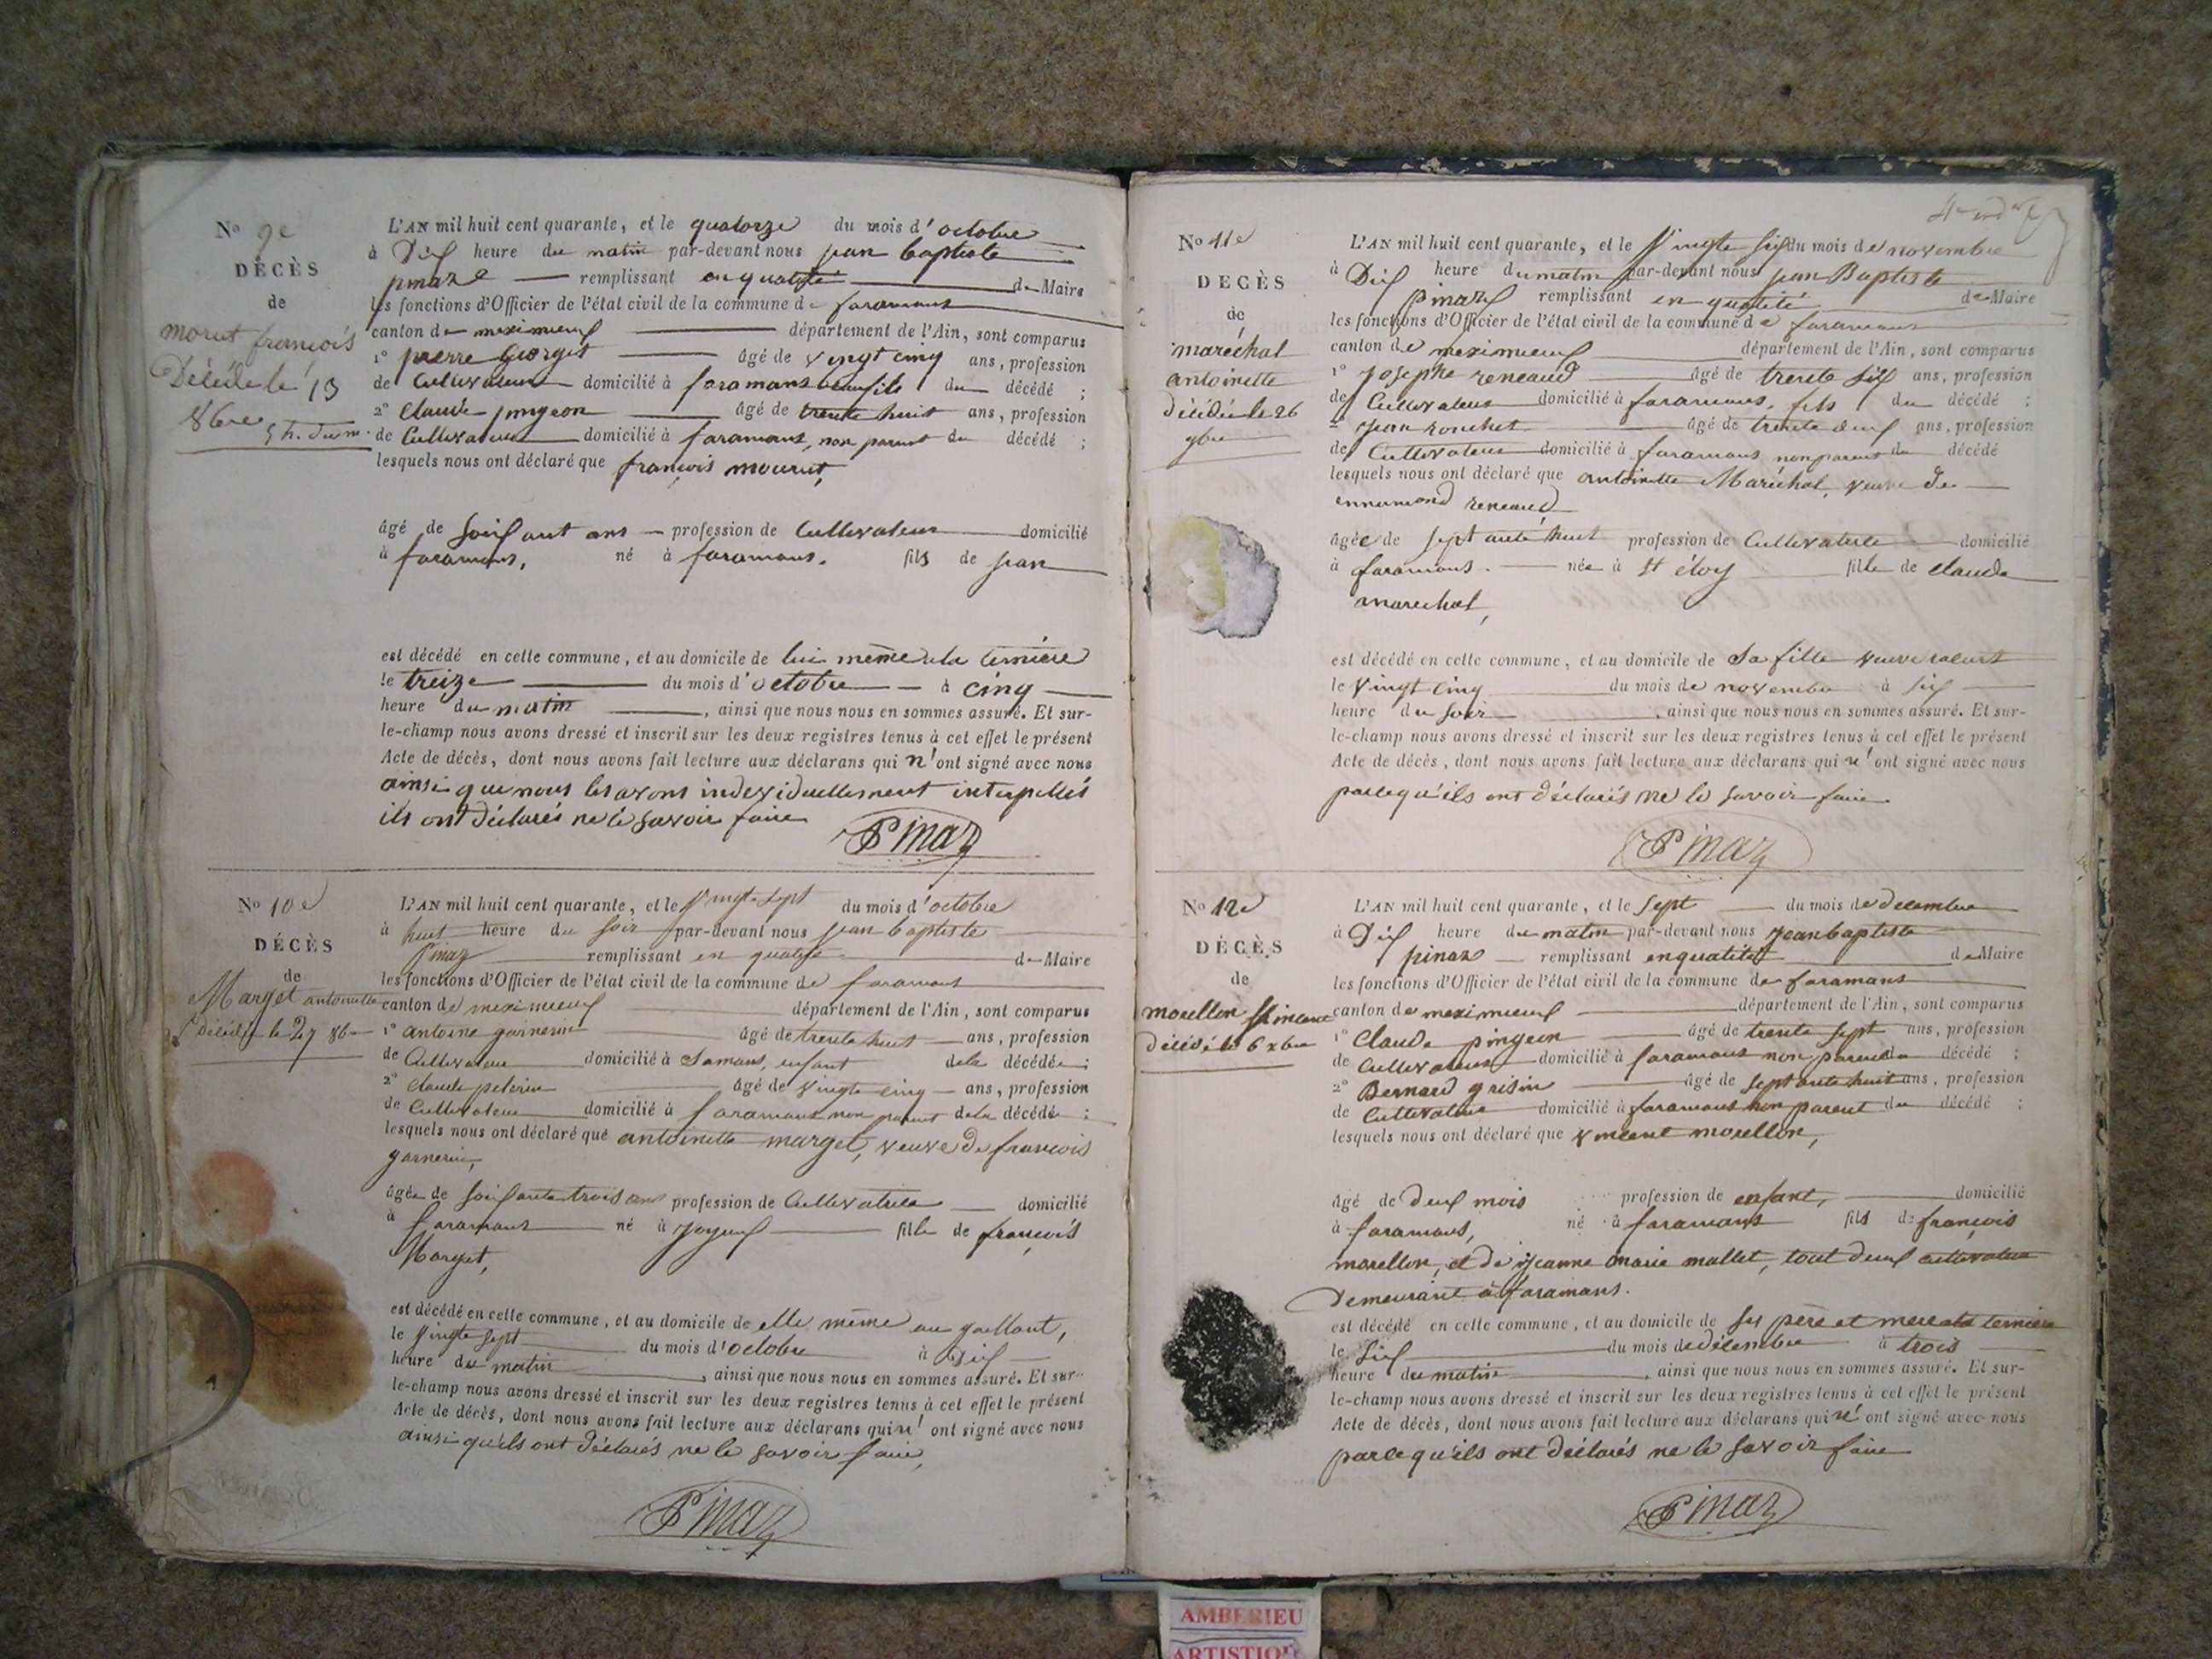 No 9e
DÉCÈS
de
morut françois
Décédé le 13
8bre 5 h. du m.
L'AN mil huit cent quarante, et le quatorze du mois d'octobre
à Dix heure du matin par-devant nous jean baptiste
pinaz remplissant en qualité de Maire
les fonctions d'Officier de l'état civil de la commune de faramans
canton de meximieux département de l'Ain, sont comparus
1° pierre Georget âgé de vingt cinq ans, profession
de Cultivateur domicilié à faramans beaufils du décédé ;
2° Claude pingeon âgé de trente huit ans, profession
de Cultivateur domicilié à faramans, non parent du décédé ;
lesquels nous ont déclaré que françois mourut,
âgé de soixant ans profession de Cultivateur domicilié
à faramans, né à faramans. fils de jean
est décédé en cette commune, et au domicile de lui même a la ternière
le treize du mois d'octobre à cinq
heure du matin, ainsi que nous nous en sommes assuré. Et sur-
le-champ nous avons dressé et inscrit sur les deux registres tenus à cet effet le présent
Acte de décès, dont nous avons fait lecture aux déclarans qui n'ont signé avec nous
ainsi que nous les avons individuellement interpellés
ils ont déclarés ne le savoir faire
Pinaz
No 10e
DÉCÈS
de
Marget antoinette
décédée le 27 8b
L'AN mil huit cent quarante, et le vingt sept du mois d'octobre
à huit heure du soir par-devant nous jean baptiste
Pinaz remplissant en qualité de Maire
les fonctions d'Officier de l'état civil de la commune de faramans
canton de meximieux département de l'Ain, sont comparus
1° antoine garnerin âgé de trente huit ans, profession
de Cultivateur domicilié à Samans, enfant de la décédée ;
2° claude pelerin âgé de vingt cinq ans, profession
de Cultivateur domicilié à faramans non parent de la décédé ;
lesquels nous ont déclaré que antoinette marget, veuve de françois
garnerin,
âgée de soixante trois ans profession de Cultivatrice domicilié
à faramans né à joyeux fille de françois
Marget,
est décédé en cette commune, et au domicile de elle même au gaillant,
le vingt sept du mois d'octobre à Dix
heure du matin, ainsi que nous nous en sommes assuré. Et sur-
le-champ nous avons dressé et inscrit sur les deux registres tenus à cet effet le présent
Acte de décès, dont nous avons fait lecture aux déclarans qui n'ont signé avec nous
ainsi qu'ils ont déclarés ne le savoir faire,
Pinaz
No 11e
DECÈS
de
maréchal
antoinette
décédée le 26
9bre
L'AN mil huit cent quarante, et le vingt six du mois de novembre
à Dix heure du matin par-devant nous jean Baptiste
Pinaz remplissant en qualité de Maire
les fonctions d'Officier de l'état civil de la commune de faramans
canton de meximieux département de l'Ain, sont comparus
1° Josephe reneaud âgé de trente six ans, profession
de Cultivateur domicilié à faramans, fils du décédé ;
2° jean ronchet âgé de trente deux ans, profession
de Cultivateur domicilié à faramans non parent du décédé
lesquels nous ont déclaré que antoinette Maréchal, veuve de
ennemond reneaud
âgée de septante huit profession de Cultivatrice domicilié
à faramans. née à St éloy fille de claude
marechal,
est décédé en cette commune, et au domicile de sa fille veuve
le vingt cinq du mois de novembre à six
heure du soir, ainsi que nous nous en sommes assuré. Et sur-
le-champ nous avons dressé et inscrit sur les deux registres tenus à cet effet le présent
Acte de décès, dont nous avons fait lecture aux déclarans qui n'ont signé avec nous
parcequ'ils ont déclarés ne le savoir faire
Pinaz
No 12e
DÉCÈS
de
morellon Vincent
décédé le 6 xbre
L'AN mil huit cent quarante, et le sept du mois de decembre
à Dix heure du matin par-devant nous jean baptiste
pinaz remplissant en qualité de Maire
les fonctions d'Officier de l'état civil de la commune de faramans
canton de meximieux département de l'Ain, sont comparus
1° Claude pingeon âgé de trente sept ans, profession
de Cultivateur domicilié à faramans non parent du décédé ;
2° Bernard grisin âgé de septante huit ans, profession
de Cultivateur domicilié à faramans non parent du décédé ;
lesquels nous ont déclaré que vincent morellon,
âgé de deux mois profession de enfant, domicilié
à faramans, né à faramans fils de françois
morellon, et de jeanne marie mallet, tout deux cultivateur
demeurant à faramans.
est décédé en cette commune, et au domicile de ses père et mere a la ternière
le six du mois de décembre à trois
heure du matin, ainsi que nous nous en sommes assuré. Et sur-
le-champ nous avons dressé et inscrit sur les deux registres tenus à cet effet le présent
Acte de décès, dont nous avons fait lecture aux déclarans qui n'ont signé avec nous
parcequ'ils ont déclarés ne le savoir faire
Pinaz
AMBERIEU
ARTISTIQUE